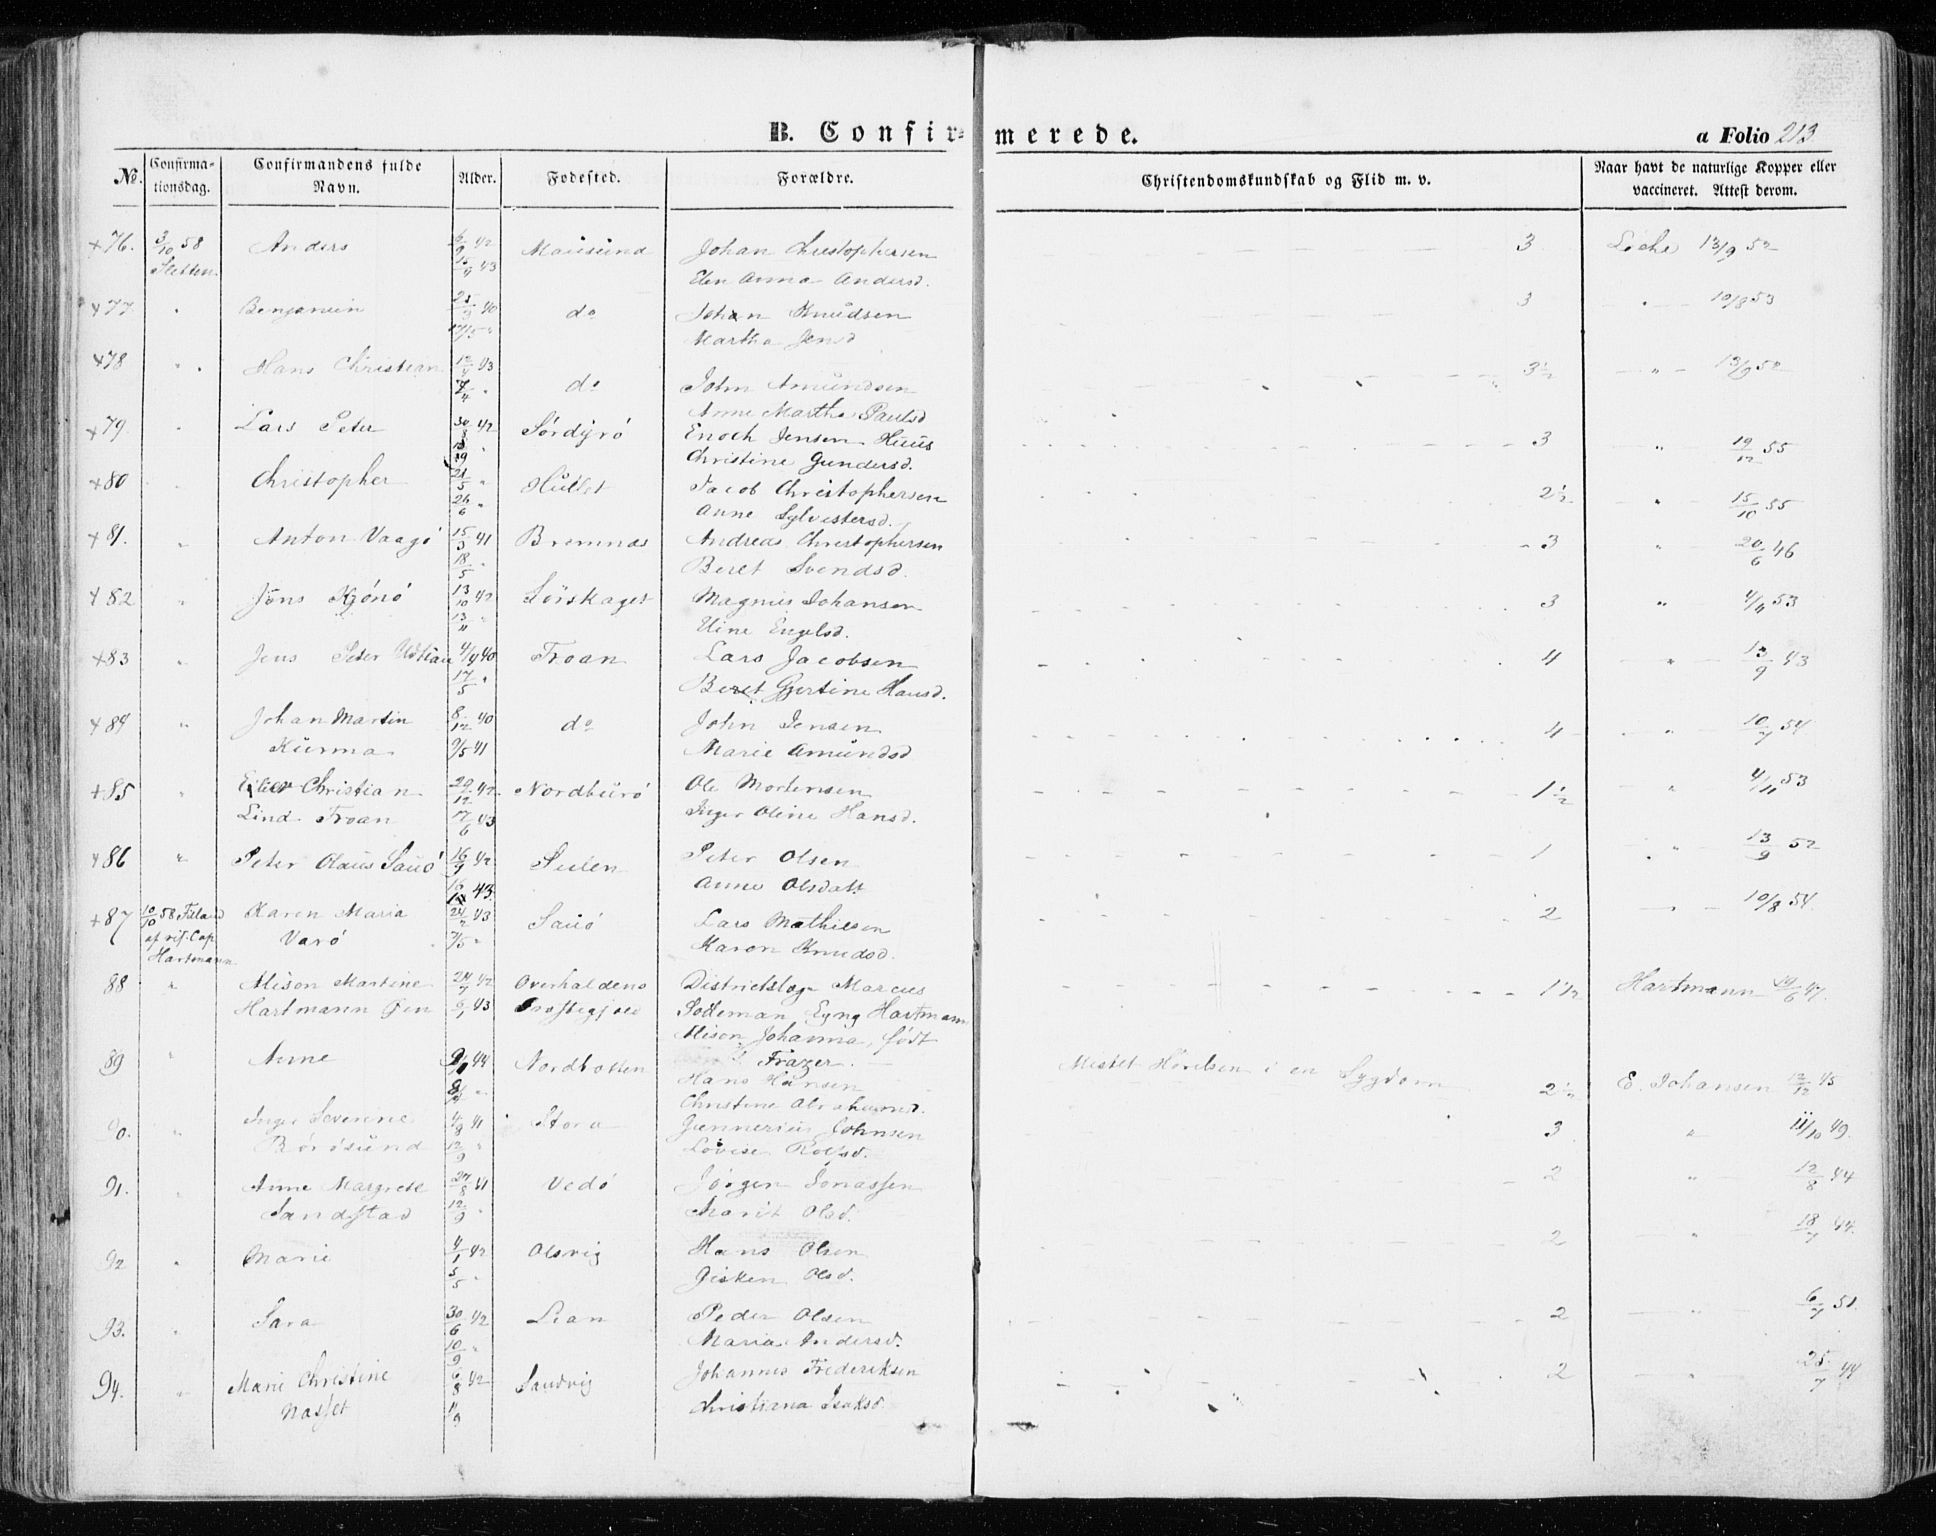 B. Confirmerede. a Folio 213
No. Confirmationsdag. Confirmandens fulde Navn. Alder. Fødested. Forældre. Christendomskundskab og Flid m. v. Naar havt de naturlige Kopper eller vaccineret. Attest derom.
+76. 3/10 58 Anders 6/9 42 Mausund Johan Christophersen 3 13/9 52
Sletten 15/4 43 Elen Anna Andersd.
+77 Benjamin 40 do Johan Knudsen 3 " 10/8 53
17/5 " Martha Jensd
+78 " Hans Christian 12/4 43 do John Amundsen 3½ " 13/9 52
Anne Martha Paulsd
+79. Lars Peter 30 42 Sørdyrø Enoch Jensen Huus 3 " 19/12 55
Christine Gundersd.
+80 Christopher 21/5 " Hullet Jacob Christophersen 2½ " 15/10 55
26/6 " Anne Sylvestersd.
+81. " Anton Vaagø 15/3 41 Bremnæs Andreas Christophersen 3 " 20/6 46
18/5 " Beret Svendsd.
+82 " Jøns Kjønø 13/10 42 Sørskaget Magnus Johansen 3 " 4/11 53
13/11 " Eline Engelsd.
+83 " Jens Peter 4/4 40 Froan Lars Jacobsen 4 " 13/9 43
17/5 " Beret Gjertine Hansd.
+84 " Johan Martin 8/12 40 do John Jensen 4 " 10/7 54
Kunna 9/5 41 Marie Amundsd
+85 " Christian 29/12 42 Nordburø Ole Mortensen 1½ " 4/11 53
Lind Froan 17/6 43 Inger Oline Hansd.
+86 " Peter Olaus Sauø 16/9 42 Sulen Peter Olsen 1 " 13/9 52
16 43 Anne Olsdatt
+87 10/10 58 Filand Karen Maria 24/2 43 Sauø Lars Mathiesen 2 " 10/8 54.
af res. Cap. Varø 7/5 " Karen Knudsd.
Hartmann
88 " Alison Martine 24/7 42 Overhaldens Districtslæge Marcus 1½ Hartmann 19/6 47.
Hartmann 6/1 43 Præstegjeld Sødeman Eyng Hartmann
Alison Johanna, født
89 " Anne 44 Nordbotten Frazer. Mistet Hørelsen i en Sygdom 2½ E. Johansen 12/12 45
Hans Hansen
Christine Abrahamsd.
90. " Inger Severine 4/8 41 Storø Gunnerius Johnsen 3 " 11/10 49.
Børøsund 12/9 " Lovise Rolfsd.
91. " Anne Margrete 27/8 41 Vedø Jørgen Jonassen 2 " 12/8 44
Sandstad 12/9 " Marit Olsd.
92 " Marie 4/1 42 Olsvig Hans Olsen 2 " 18/7 44.
5/5 " Gisken Olsd.
93. " Sara 30/6 42 Lian Peder Olsen 2 " 6/7 51.
10/9 " Maria Andersd.
94. " Marie Christine 6/8 42 Sandvig Johannes Frederiksen 2 " 25/7 44
Nasset 11/9 Christiana Isaksd.